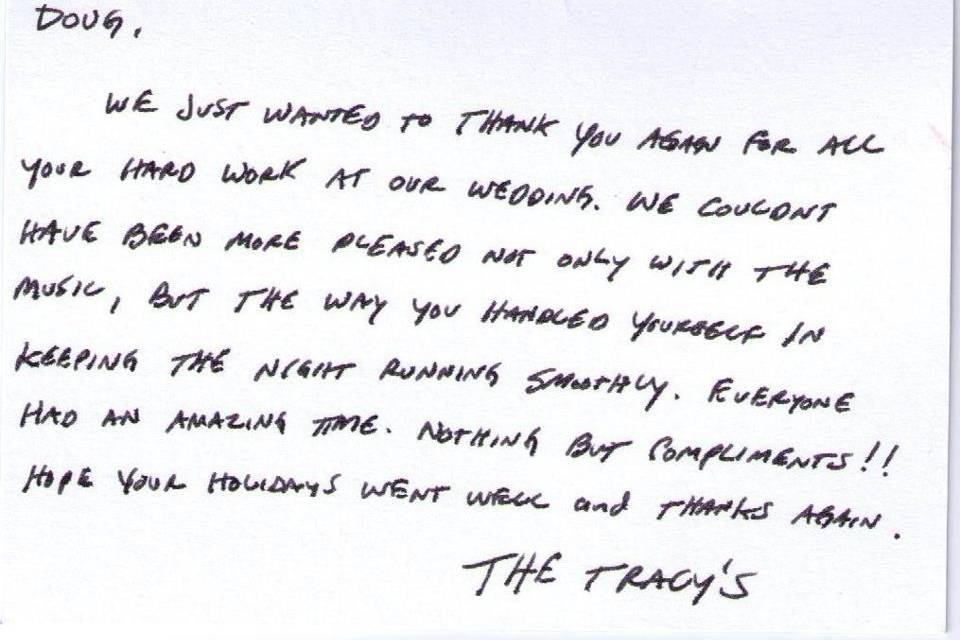 DOUG,
WE JUST WANTED TO THANK YOU AGAIN FOR ALL
YOUR HARD WORK AT OUR WEDDING. WE COULDNT
HAVE BEEN MORE PLEASED NOT ONLY WITH THE
MUSIC, BUT THE WAY YOU HANDLED YOURSELF IN
KEEPING THE NIGHT RUNNING SMOOTHLY. EVERYONE
HAD AN AMAZING TIME. NOTHING BUT COMPLIMENTS!!
HOPE YOUR HOLIDAYS WENT WELL and THANKS AGAIN.
THE TRACY'S